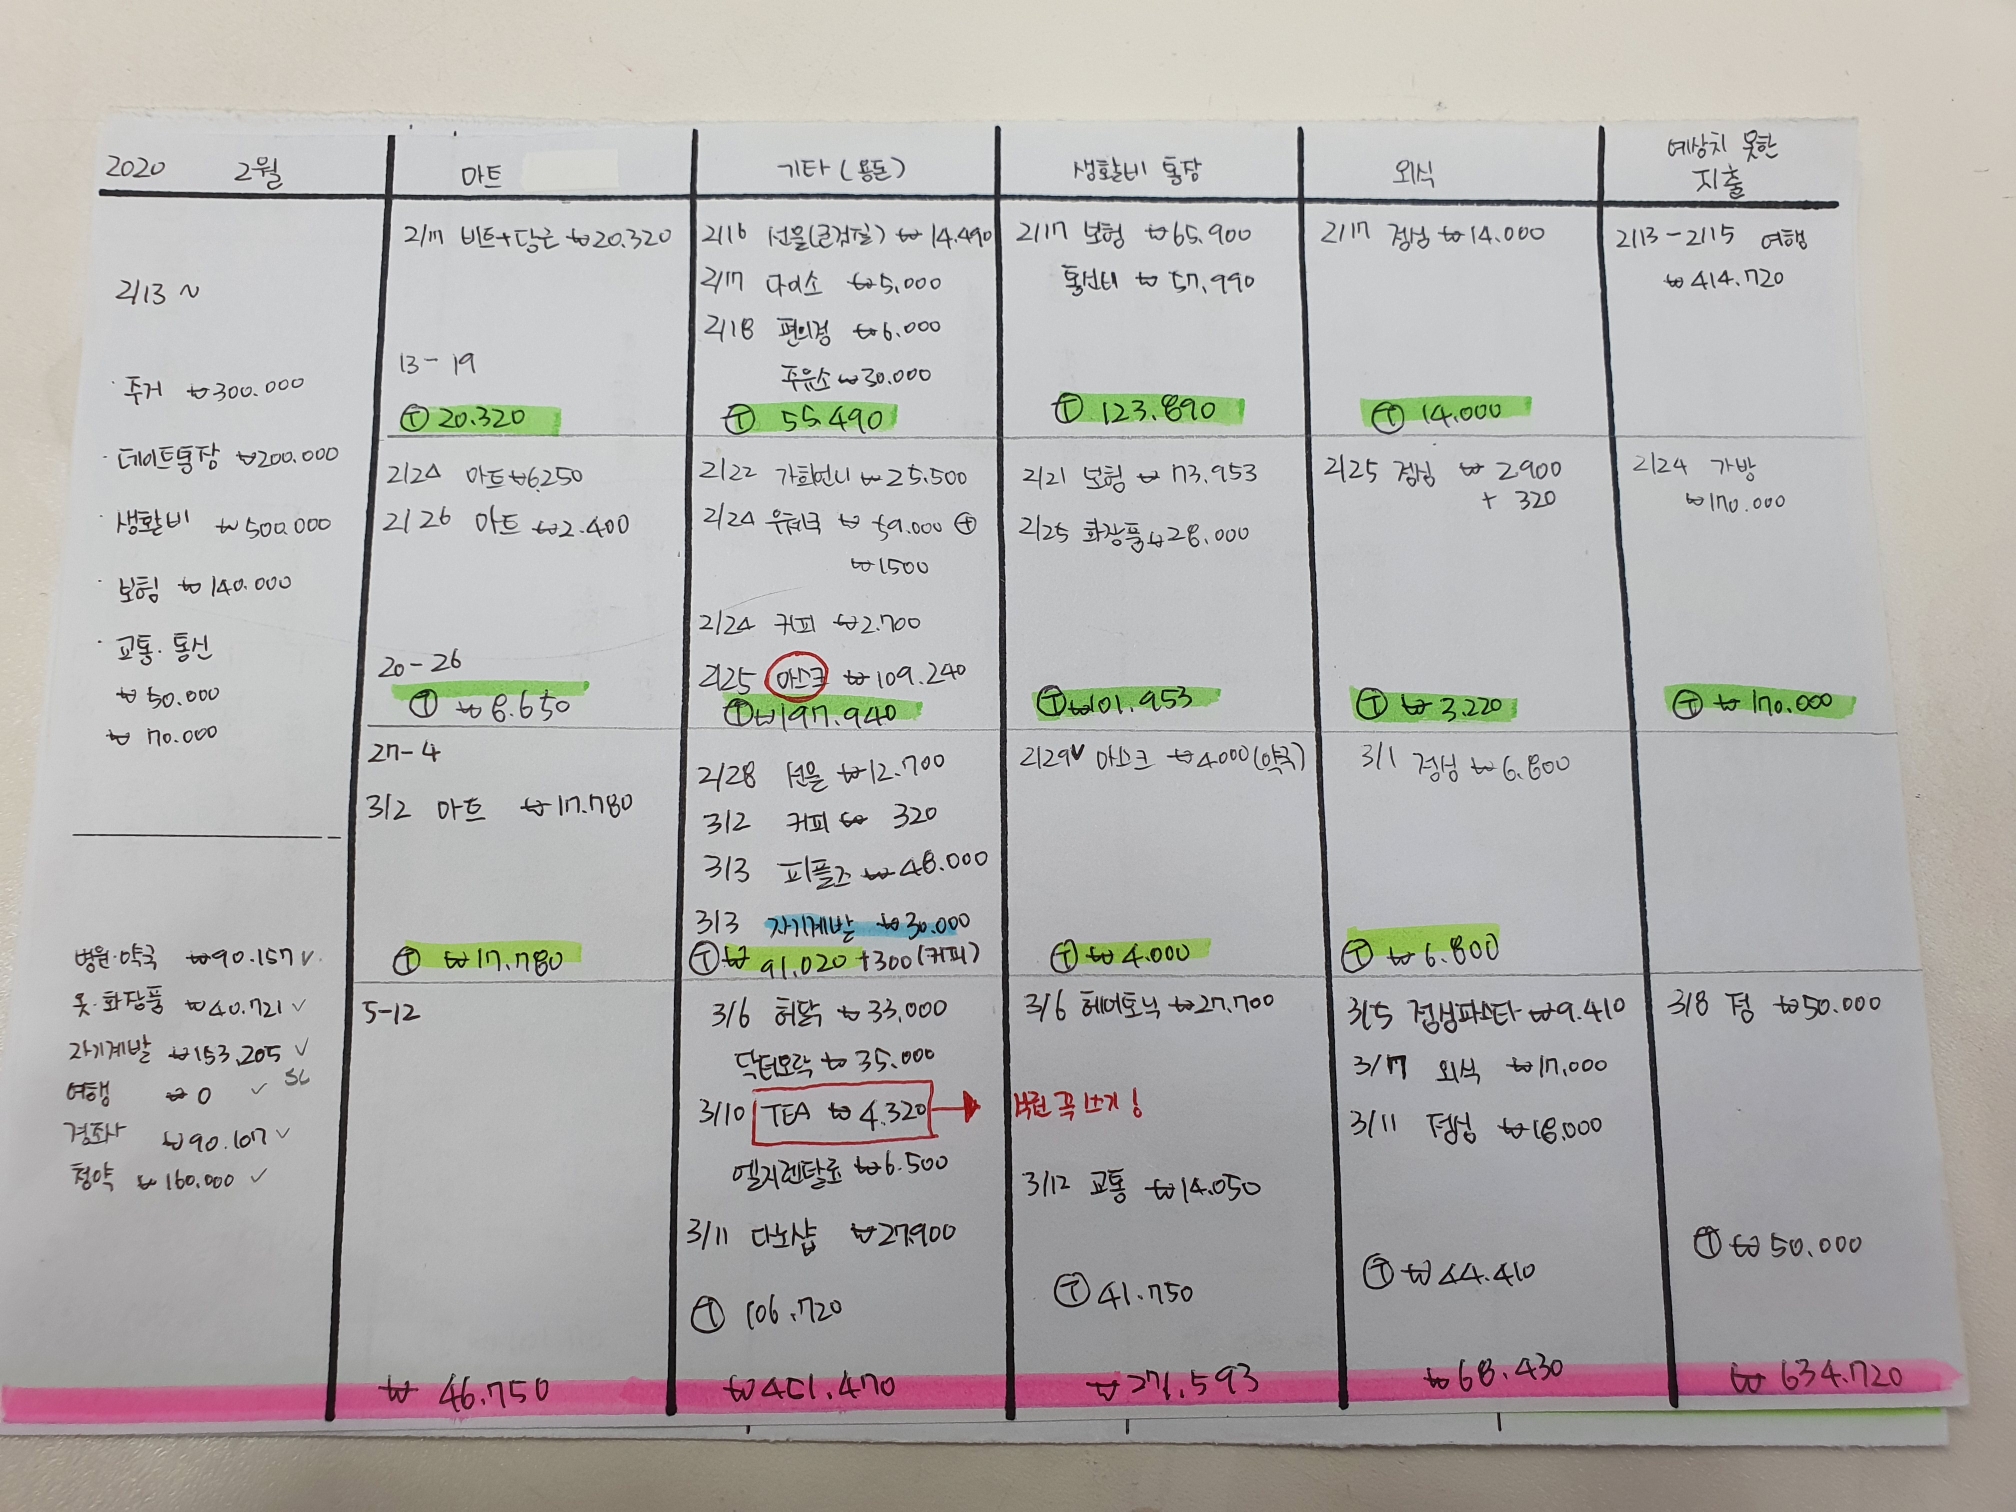 2020 2월
마트
기타 (용돈)
생활비 통장
외식
예상치 못한
지출
2/13 ~
· 주거 ₩300.000
· 데이트통장 ₩200.000
· 생활비 ₩500.000
· 보험 ₩140.000
· 교통·통신
₩50.000
₩70.000
병원·약국 ₩90.157 ✓
옷·화장품 ₩40.721 ✓
자기계발 ₩153,205 ✓
여행 ₩0 ✓
경조사 ₩90.107 ✓
청약 ₩160.000 ✓
2/17 비트+당근 ₩20.320
13-19
Ⓣ 20.320
2/24 마트 ₩6,250
2/26 마트 ₩2.400
20-26
Ⓣ ₩8.650
27-4
3/2 마트 ₩17.780
Ⓣ ₩17.780
5-12
₩ 46.750
2/16 선물 ₩14.490
2/17 다이소 ₩5,000
2/18 편의점 ₩6.000
주유소 ₩30.000
Ⓣ 55.490
2/22 가희언니 ₩25.500
2/24 우체국 ₩59.000 ⊕
₩1500
2/24 커피 ₩2.700
2/25 마스크 ₩109.240
Ⓣ ₩197.940
2/28 선물 ₩12.700
3/2 커피 ₩320
3/3 피플즈 ₩48.000
3/3 자기계발 ₩30.000
Ⓣ ₩91.020 +300 (커피)
3/6 허닭 ₩33,000
닥터모락 ₩35.000
3/10 TEA ₩4.320
엘지렌탈료 ₩6.500
3/11 다노샵 ₩27,900
Ⓣ 106.720
₩451.470
2/17 보험 ₩65,900
통신비 ₩57,990
Ⓣ 123.890
2/21 보험 ₩73.953
2/25 화장품 ₩28,000
Ⓣ ₩101.953
2/29 마스크 ₩4000 (약국)
Ⓣ ₩4.000
3/6 헤어토닉 ₩27.700
쿠폰 꼭 쓰기!
3/12 교통 ₩14.050
Ⓣ 41.750
₩271,593
2/17 점심 ₩14.000
Ⓣ 14.000
2/25 점심 ₩2.900
+ 320
Ⓣ ₩3.220
3/1 점심 ₩6.800
Ⓣ ₩6.800
3/5 점심파스타 ₩9.410
3/7 외식 ₩17,000
3/11 점심 ₩18,000
Ⓣ ₩44.410
₩68.430
2/13-2/15 여행
₩414.720
2/24 가방
₩170.000
Ⓣ ₩170.000
3/8 정 ₩50.000
Ⓣ ₩50.000
₩634.720